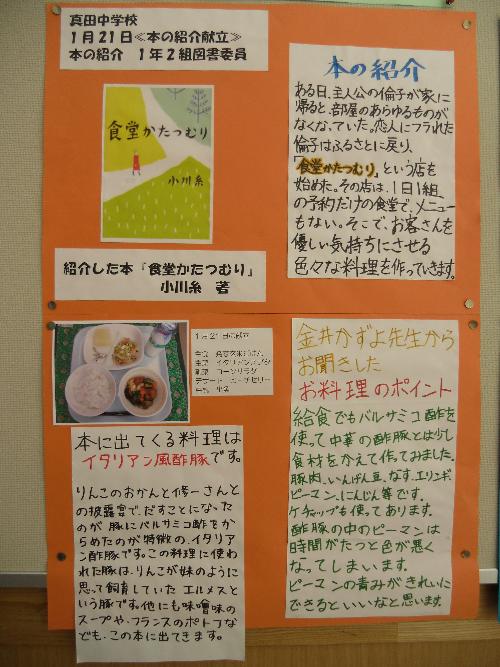 真田中学校
1月21日≪本の紹介献立≫
本の紹介 1年2組図書委員
食堂かたつむり
小川糸
紹介した本『食堂かたつむり』
小川糸 著
本の紹介
ある日、主人公の倫子が家に
帰ると、部屋のあらゆるものが
なくなっていた。恋人にフラれた
倫子はふるさとに戻り、
『食堂かたつむり』という店を
始めた。その店は、1日1組
の予約だけの食堂で、メニュー
もない。そこで、お客さんを
優しい気持ちにさせる
色々な料理を作っていきます。
1月21日の献立
本に出てくる料理は
イタリアン風酢豚です。
りんこのおかんと修一さんと
の披露宴で、だすことになった
のが豚にバルサミコ酢をか
らめたのが特徴の、イタリア
ン酢豚です。この料理に使わ
れた豚は、りんこが妹のように
思って飼育していたエルメスと
いう豚です。他にも味噌味の
スープや、フランスのポトフな
ども、この本に出てきます。
金井かずよ先生から
お聞きした
お料理のポイント
給食でもバルサミコ酢を
使って中華の酢豚とは少し
食材をかえて作ってみました。
豚肉、いんげん豆、なす、エリンギ
ピーマン、にんじん等です。
ケチャップも使ってあります。
酢豚の中のピーマンは
時間がたつと色が悪く
なってしまいます。
ピーマンの青みがきれいに
できるといいなと思います。